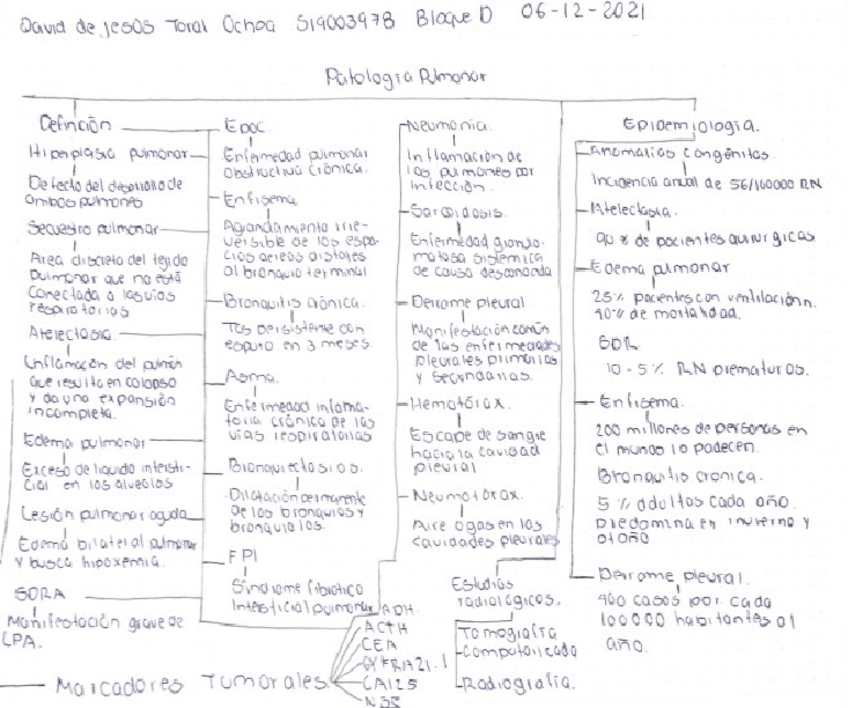 David de Jesús Toral Ochoa S19003978 Bloque D 06-12-2021
Patología Pulmonar
Definción
Hiperplasia pulmonar
Defecto del desarrollo de
ambos pulmones
Secuestro pulmonar
Area discreta del tejido
pulmonar que no está
conectada a las vías
respiratorias
Atelectasia.
Inflamación del pulmón
que resulta en colapso
y da una expansión
incompleta.
Edema pulmonar
Exceso de liquido intersti-
cial en los alveolos
Lesión pulmonar aguda
Edema bilateral pulmonar
y busca hipoxemia.
SDRA
Manifestación grave de
LPA.
Epoc
Enfermedad pulmonar
obstructiva crónica.
Enfisema
Agrandamiento irre-
versible de los espa-
cios aereos distales
al bronquio terminal
Bronquitis crónica.
Tos persistente con
esputo en 3 meses.
Asma.
Enfermedad inflama-
toria crónica de las
vías respiratorias
Bronquiectasias.
Dilatación permanente
de los bronquios y
bronquiolos.
FPI
Síndrome fibrotico
Intersticial pulmonar
Neumonia.
Inflamación de
los pulmones por
infección.
Sarcoidosis.
Enfermedad granulo-
matosa sistemica
de causa desconocida
Derrame pleural
Manifestación común
de las enfermedades
pleurales primarias
y secundarias.
Hemotórax.
Escape de sangre
hacia la cavidad
pleural
Neumotórax.
Aire o gas en las
cavidades pleurales
Estudios
radiológicos.
Tomografía
computarizada
Radiografía.
Epidemiologia.
Anomalias congénitas.
Incidencia anual de 56/100000 RN
Atelectasia.
90% de pacientes quirurgicas
Edema pulmonar
25% pacientes con ventilación.
40% de mortalidad.
SDR
10-5% RN prematuros.
Enfisema.
200 millones de personas en
el mundo lo padecen.
Bronquitis cronica.
5% adultos cada año.
predomina en invierno y
otoño
Derrame pleural.
400 casos por cada
100000 habitantes al
año.
Marcadores Tumorales
ADH.
ACTH
CEA
CYFRA21.1
CA125